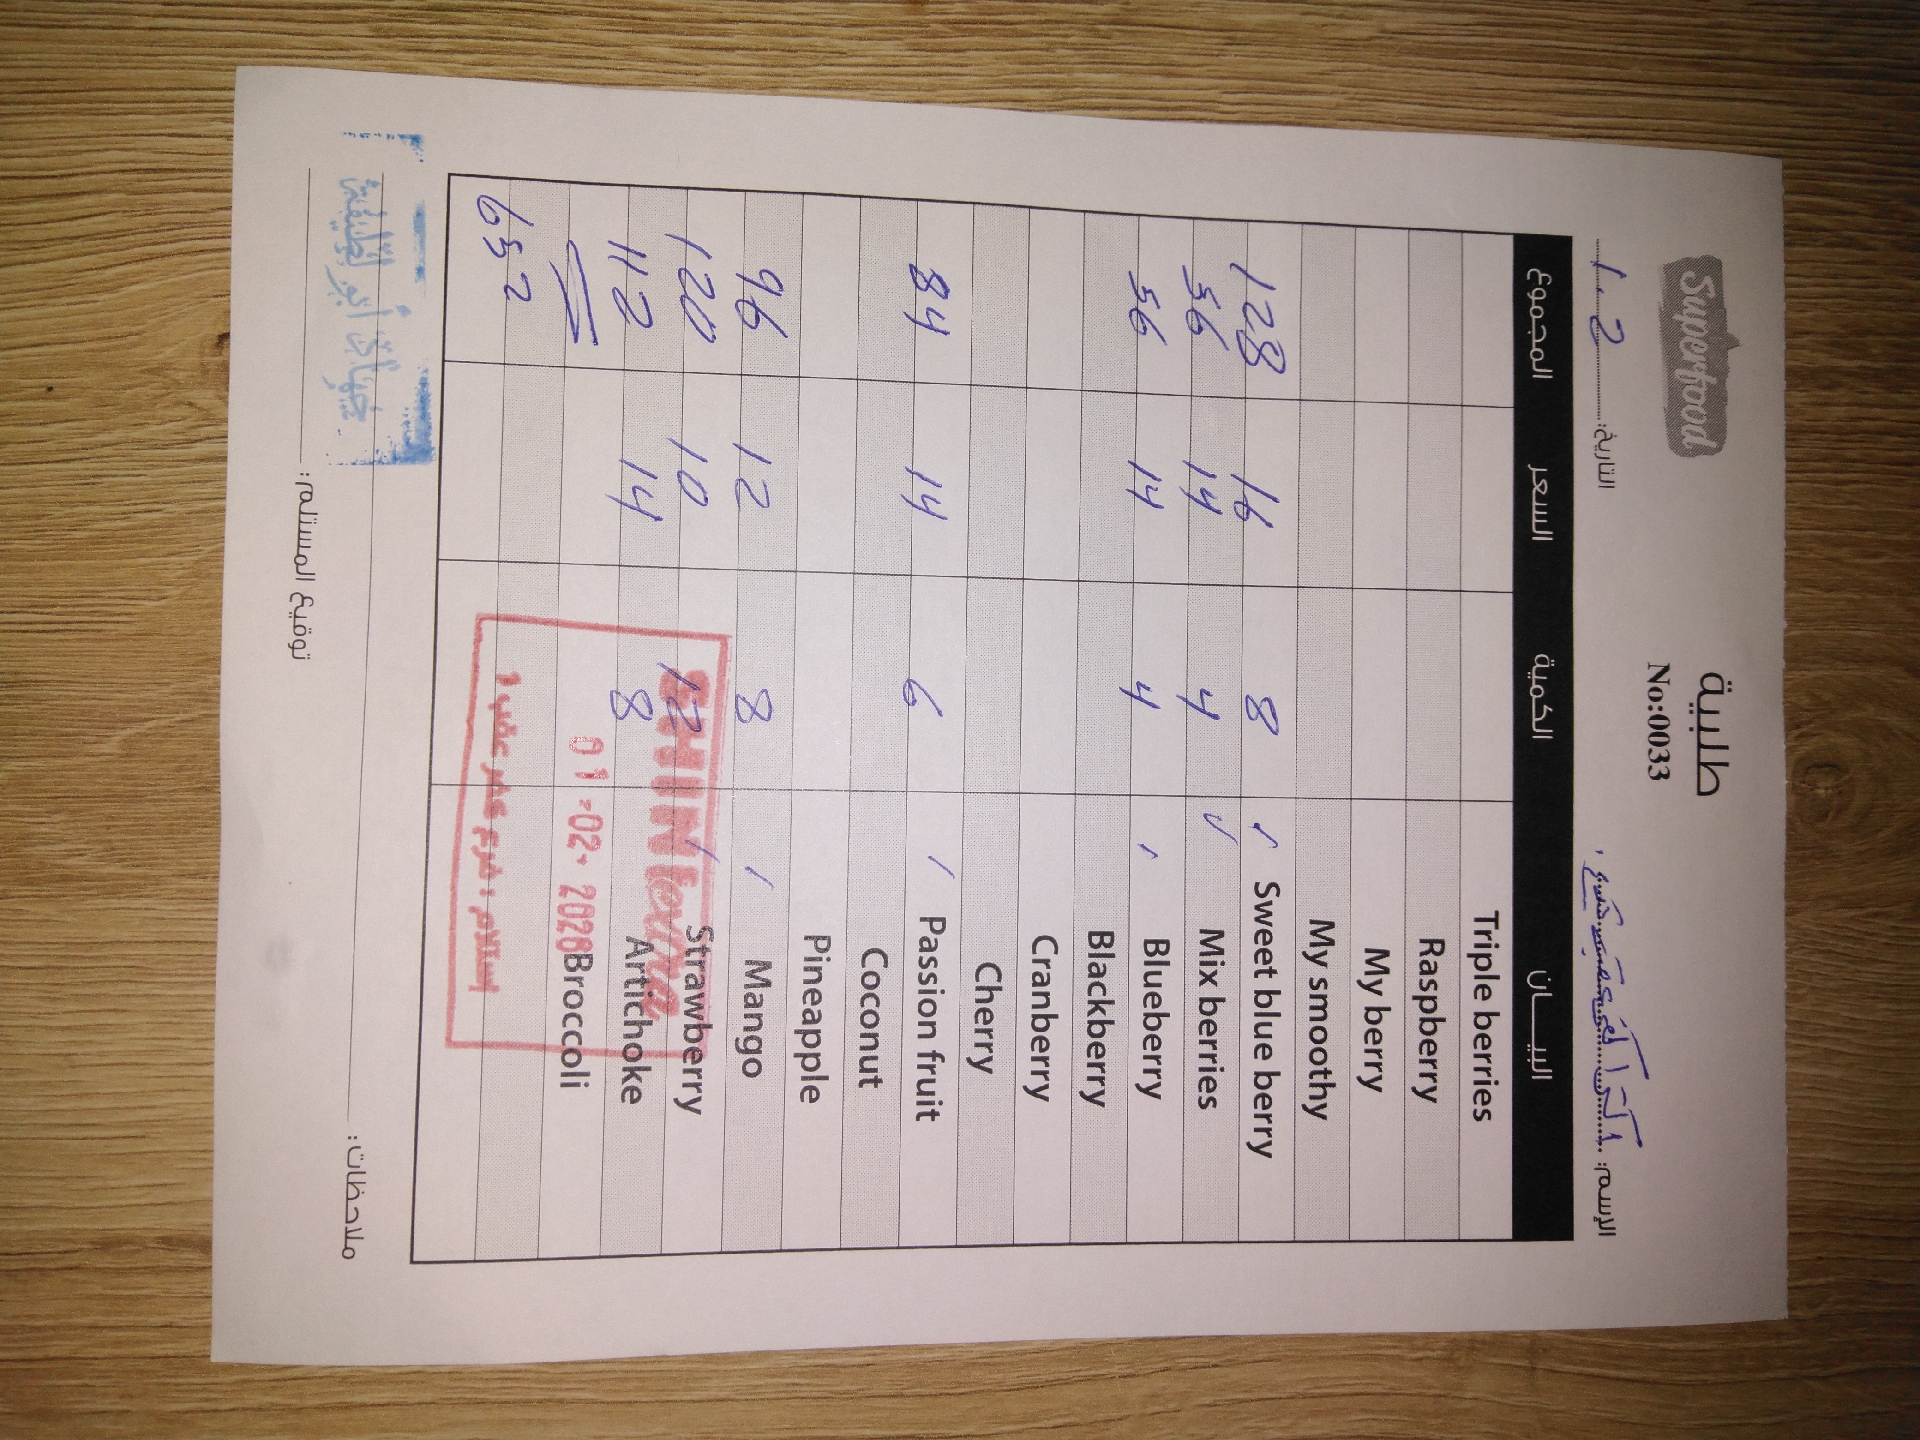 Superfood
طلبية
No:0033
الإسم:
التاريخ: 1.2
البيـــان الكمية السعر المجموع
Triple berries
Raspberry
My berry
My smoothy
Sweet blue berry ✓ 8 16 128
Mix berries ✓ 4 14 56
Blueberry 4 14 56
Blackberry
Cranberry
Cherry
Passion fruit 6 14 84
Coconut
Pineapple
Mango 8 12 96
Strawberry 12 10 120
Artichoke 8 14 112
Broccoli
652
SHINI
01.02.2026
إستلام فرع
ملاحظات:
توقيع المستلم: